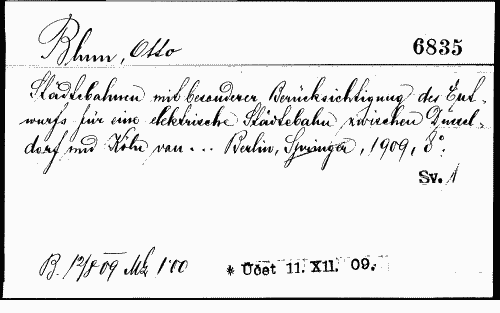 Blum, Otto
6835
Städtebahnen mit besonderer Berücksichtigung des Ent-
wurfs für eine elektrische Städtebahn zwischen Dussel-
dorf und Köln von ... Berlin, Springer, 1909, 8°.
Sv. 1
B. 12/8 09 Mk 1'00
* Účet 11. XII. 09.